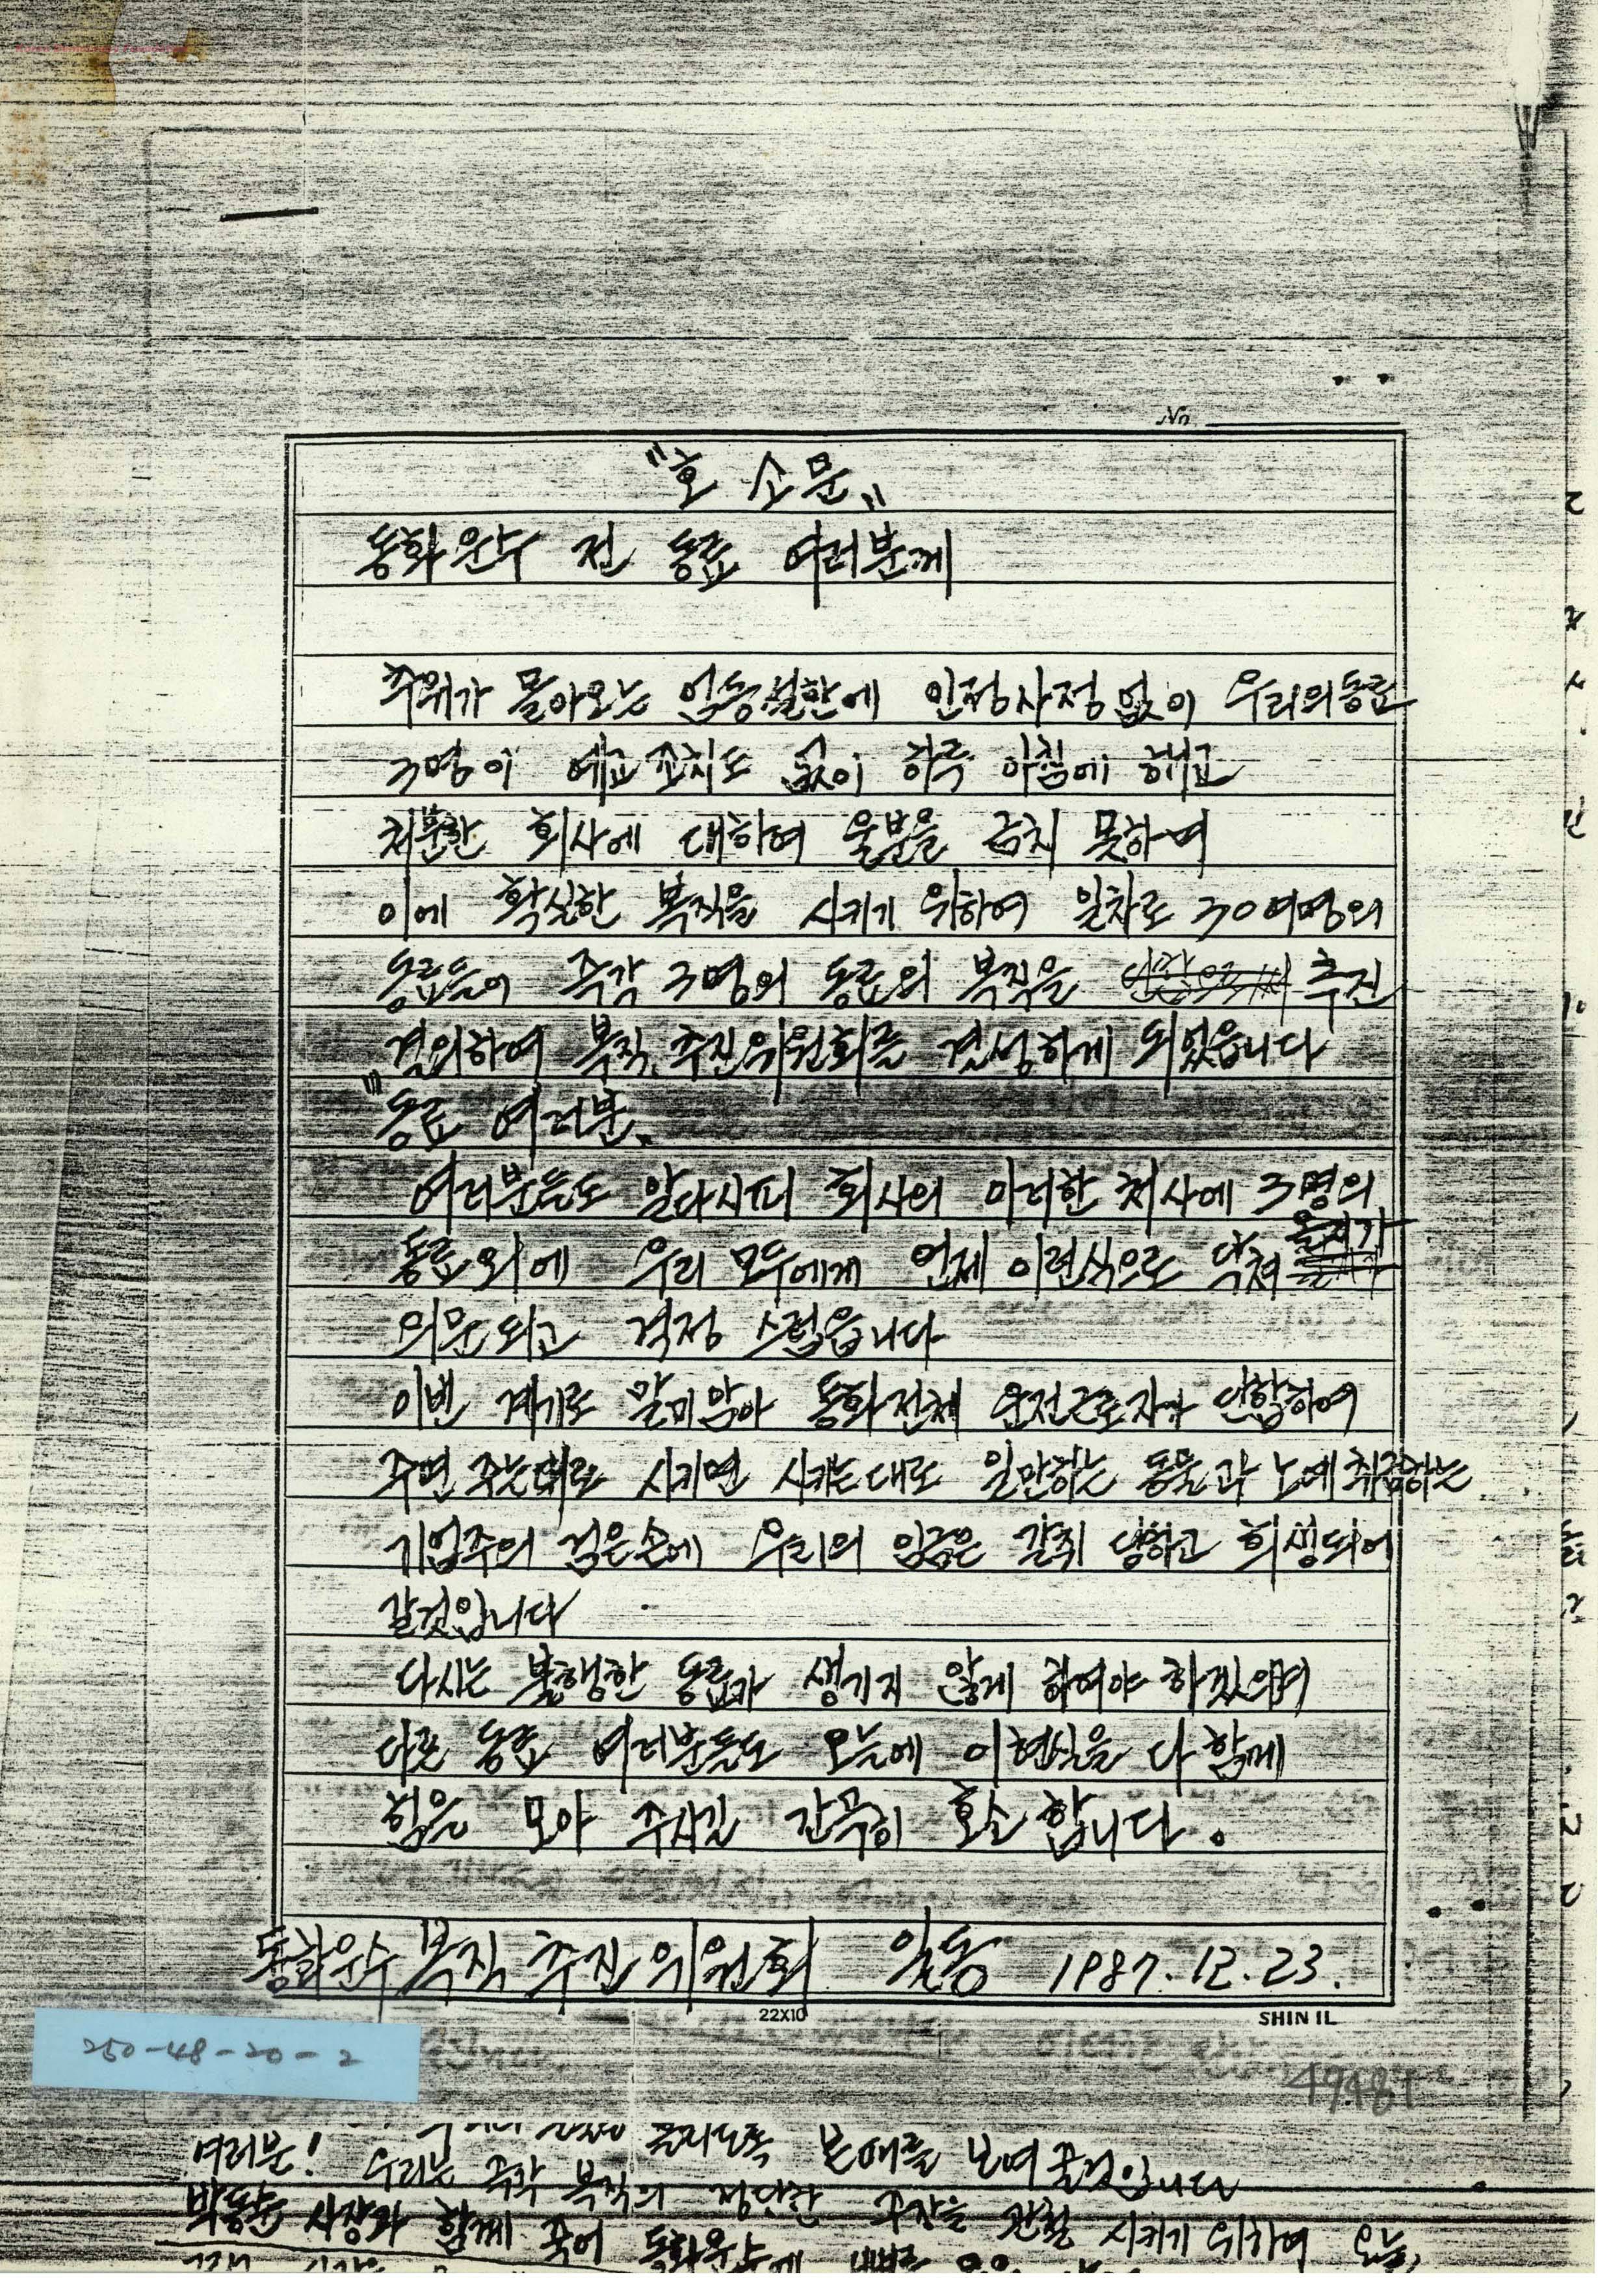 No.
"호 소 문"
동화운수 전 동료 여러분께
추위가 몰아오는 엄동설한에 인정사정 없이 우리의동료
3명이 예고 조치도 없이 하루 아침에 해고
처분한 회사에 대하여 울분을 금치 못하여
이에 확실한 복직을 시키기 위하여 일차로 30여명의
동료들이 즉각 3명의 동료의 복직을 추진
결의하여 복직 추진위원회를 결성하게 되었읍니다
"동료 여러분"
여러분들도 알다시피 회사의 이러한 처사에 3명의
동료외에 우리 모두에게 언제 이런식으로 닥쳐 올지가
의문되고 걱정 스럽읍니다
이번 계기로 말미암아 동화전체 운전근로자가 단합하여
주면 주는대로 시키면 시키는대로 일만하는 동물과 노예취급하는
기업주의 검은손에 우리의 임금은 갈취 당하고 희생되어
갈것입니다
다시는 불행한 동료가 생기지 않게 하여야 하겠으며
다른 동료 여러분들도 오늘에 이현실을 다 함께
힘을 모아 주시길 간곡히 호소 합니다.
동화운수 복직 추진 위원회 일동 1987.12.23.
22X10
SHIN IL
250-48-20-2
여러분! 우리는 즉각 복직의 정당한 주장을 관철 시키기 위하여 오늘,
사장과 함께 죽어 동화운수에